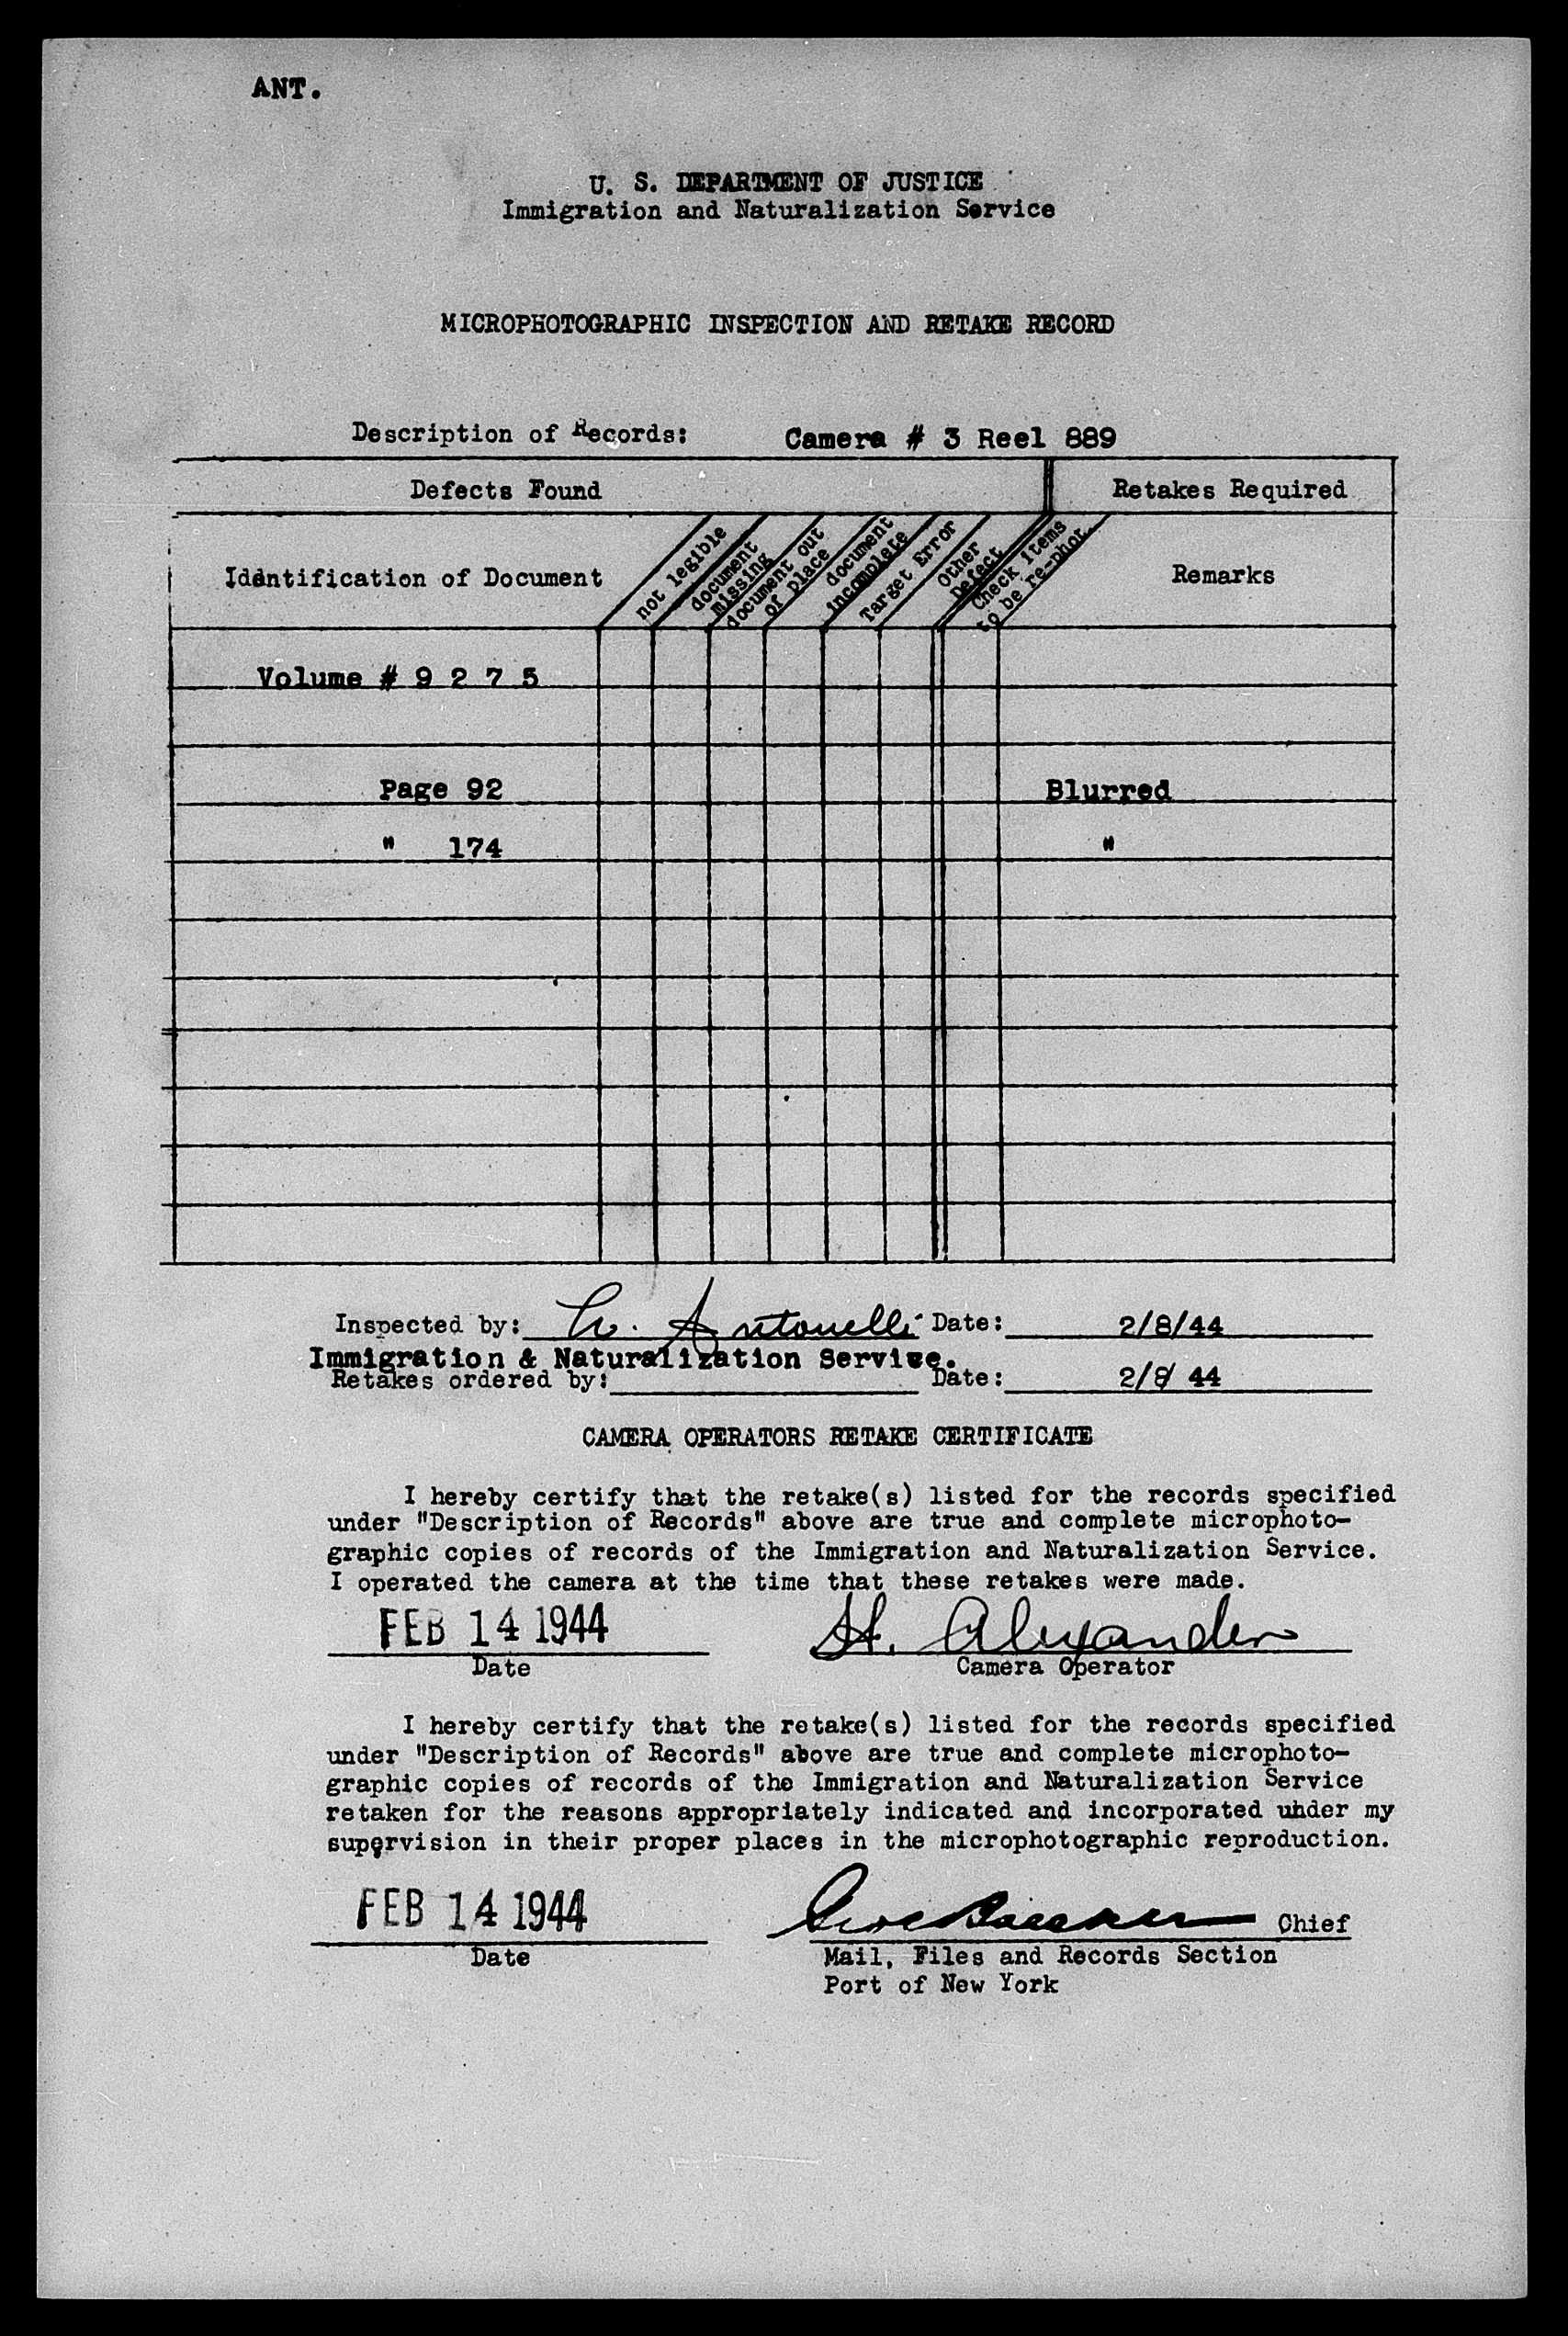 ANT.
U. S. DEPARTMENT OF JUSTICE
Immigration and Naturalization Service
MICROPHOTOGRAPHIC INSPECTION AND RETAKE RECORD
Description of Records: Camera # 3 Reel 889
Defects Found Retakes Required
Identification of Document not legible document missing document out of place document incomplete Target Error Other Defect Check items to be re-phot. Remarks
Volume # 9 2 7 5
Page 92 Blurred
" 174 "
Inspected by: Antonelli Date: 2/8/44
Immigration & Naturalization Service.
Retakes ordered by: Date: 2/8/ 44
CAMERA OPERATORS RETAKE CERTIFICATE
I hereby certify that the retake(s) listed for the records specified
under "Description of Records" above are true and complete microphoto-
graphic copies of records of the Immigration and Naturalization Service.
I operated the camera at the time that these retakes were made.
FEB 14 1944 H. Alexander
Date Camera Operator
I hereby certify that the retake(s) listed for the records specified
under "Description of Records" above are true and complete microphoto-
graphic copies of records of the Immigration and Naturalization Service
retaken for the reasons appropriately indicated and incorporated uhder my
supervision in their proper places in the microphotographic reproduction.
FEB 14 1944 Chief
Date Mail, Files and Records Section
Port of New York